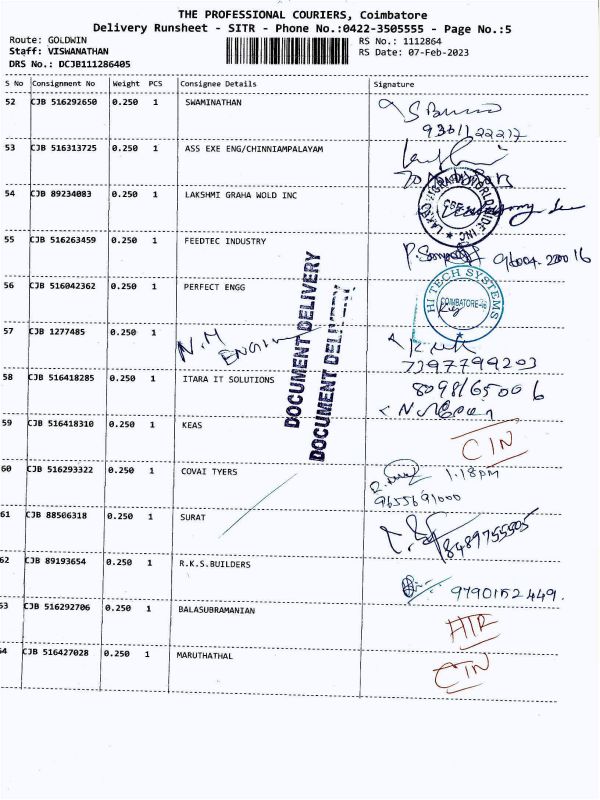 THE PROFESSIONAL COURIERS, Coimbatore
Delivery Runsheet - SITR - Phone No.:0422-3505555 - Page No.:5
Route: GOLDWIN RS No.: 1112864
Staff: VISWANATHAN RS Date: 07-Feb-2023
DRS No.: DCJB111286405
S No Consignment No Weight PCS Consignee Details Signature
52 CJB 516292650 0.250 1 SWAMINATHAN
53 CJB 516313725 0.250 1 ASS EXE ENG/CHINNIAMPALAYAM
54 CJB 89234083 0.250 1 LAKSHMI GRAHA WOLD INC
55 CJB 516263459 0.250 1 FEEDTEC INDUSTRY
56 CJB 516042362 0.250 1 PERFECT ENGG HI TECH SYSTEMS COIMBATORE
57 CJB 1277485 0.250 1 N.M
7397799203
58 CJB 516418285 0.250 1 ITARA IT SOLUTIONS 8098165006
DOCUMENT DELIVERY
DOCUMENT DELIVERY
59 CJB 516418310 0.250 1 KEAS CIN
60 CJB 516293322 0.250 1 COVAI TYERS 1.18pm
9655691000
61 CJB 88506318 0.250 1 SURAT 8489755505
62 CJB 89193654 0.250 1 R.K.S.BUILDERS 9790152449.
53 CJB 516292706 0.250 1 BALASUBRAMANIAN HTR
54 CJB 516427028 0.250 1 MARUTHATHAL CIN